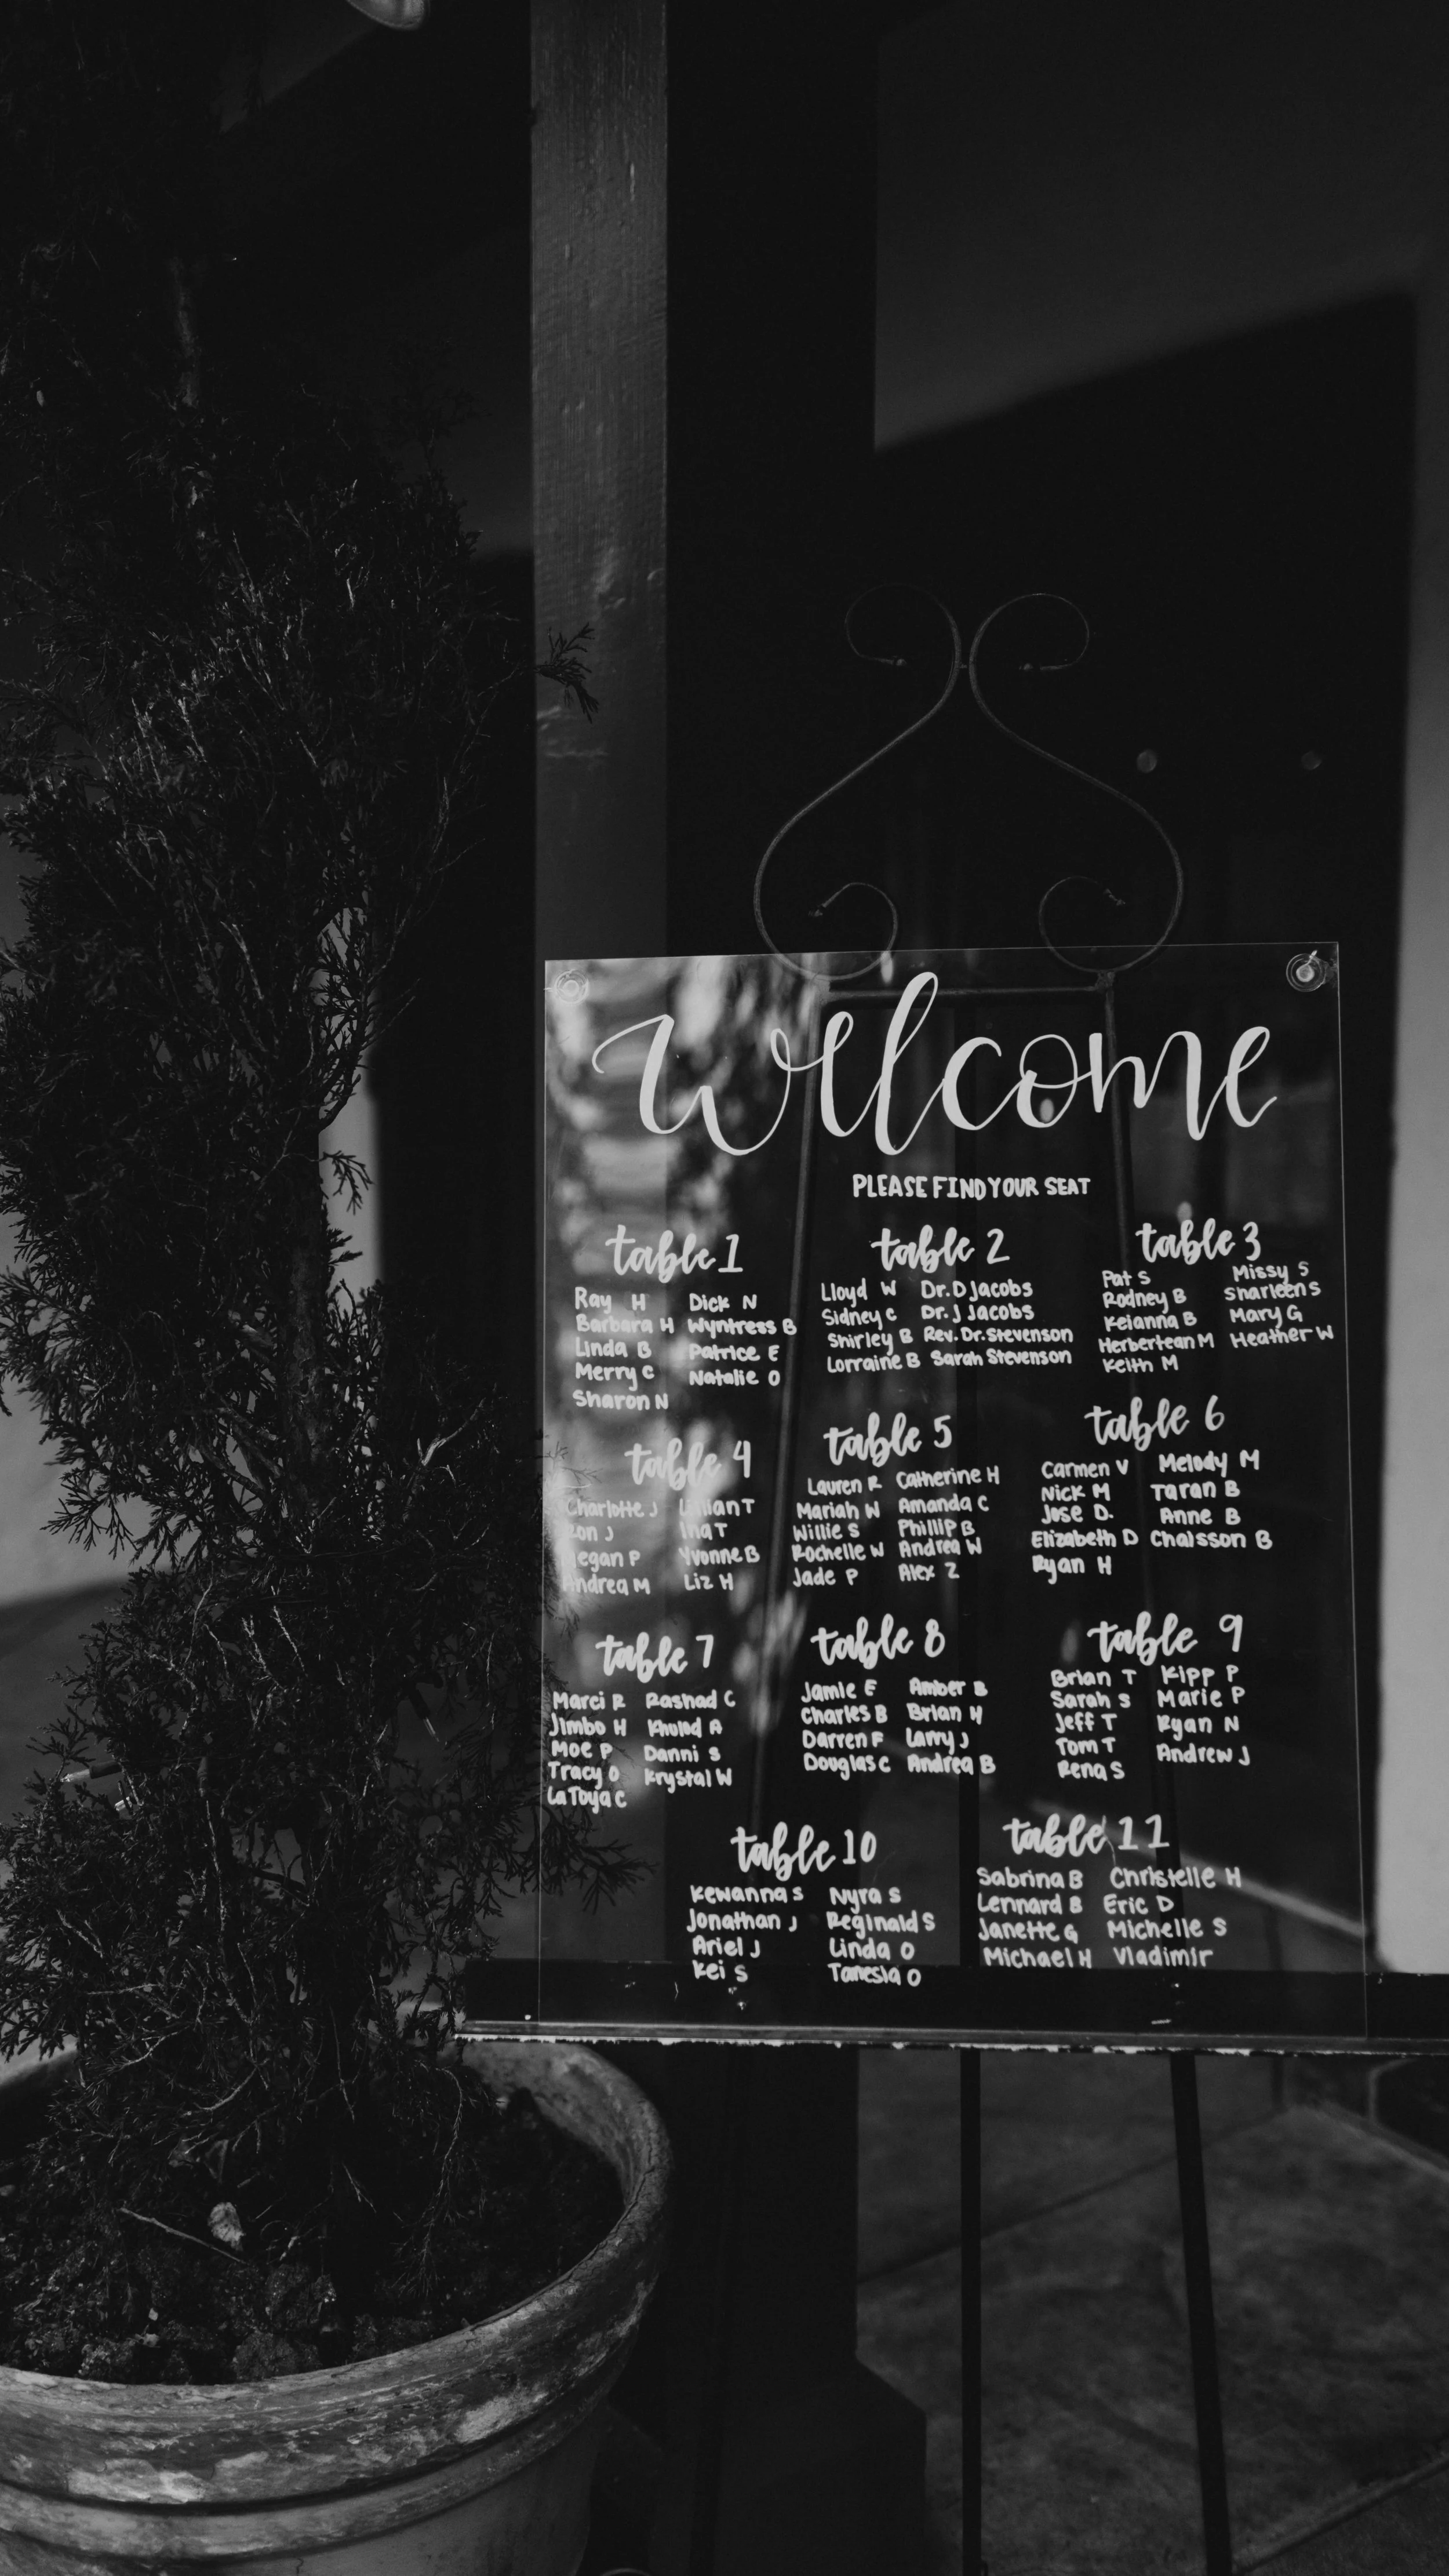 welcome
PLEASE FIND YOUR SEAT
table 1
Ray H
Barbara H
Linda B
Merry C
Sharon N
Dick N
Wyntress B
Patrice E
Natalie O
table 2
Lloyd W
Sidney C
Shirley B
Lorraine B
Dr. D Jacobs
Dr. J Jacobs
Rev. Dr. Stevenson
Sarah Stevenson
table 3
Pat S
Rodney B
Keianna B
Herbertean M
Keith M
Missy S
Sharleen S
Mary G
Heather W
table 4
Charlotte J
Ron J
Megan P
Andrea M
Lillian T
Ina T
Yvonne B
Liz H
table 5
Lauren R
Mariah W
Willie S
Rochelle W
Jade P
Catherine H
Amanda C
Phillip B
Andrea W
Alex Z
table 6
Carmen V
Nick M
Jose D.
Elizabeth D
Ryan H
Melody M
Taran B
Anne B
Chaisson B
table 7
Marci R
Jimbo H
Moe P
Tracy O
LaToya C
Rashad C
Khulod A
Danni S
Krystal W
table 8
Jamie F
Charles B
Darren F
Douglas C
Amber B
Brian H
Larry J
Andrea B
table 9
Brian T
Sarah S
Jeff T
Tom T
Rena S
Kipp P
Marie P
Ryan N
Andrew J
table 10
Kewanna S
Jonathan J
Ariel J
Kei S
Nyra S
Reginald S
Linda O
Tanesia O
table 11
Sabrina B
Lennard B
Janette G
Michael H
Christelle H
Eric D
Michelle S
Vladimir